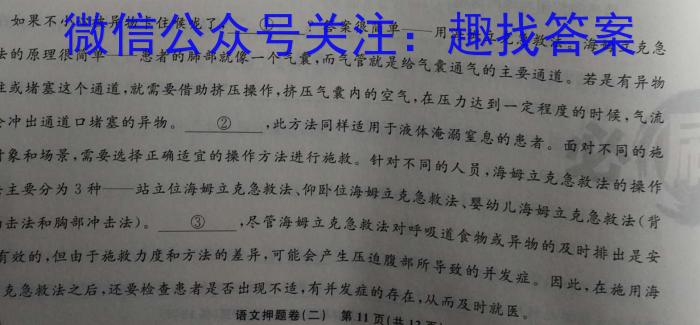 如果不小
异物卡住喉咙了
①
答案很简单——用
微信公众号关注：趣找答案
法的原理很简单——患者的肺部就像一个气囊，而气管就是给气囊通气的主要通道。若是有异物
住或堵塞这个通道，就需要借助挤压操作，挤压气囊内的空气，在压力达到一定程度的时候，气流
会冲出通道口堵塞的异物。 ② ，此方法同样适用于液体淹溺窒息的患者。面对不同的施
对象和场景，需要选择正确适宜的操作方法进行施救。针对不同的人员，海姆立克急救法的操作
主要分为3种——站立位海姆立克急救法、仰卧位海姆立克急救法、婴幼儿海姆立克急救法(背
击法和胸部冲击法)。 ③ ，尽管海姆立克急救法对呼吸道食物或异物的及时排出是安
有效的，但由于施救力度和方法的差异，可能会产生压迫腹部所导致的并发症。因此，在施用海
克急救法之后，还要检查患者是否出现不适，有并发症的存在，从而及时就医。
语文押题卷(二) 第11页(共12页)